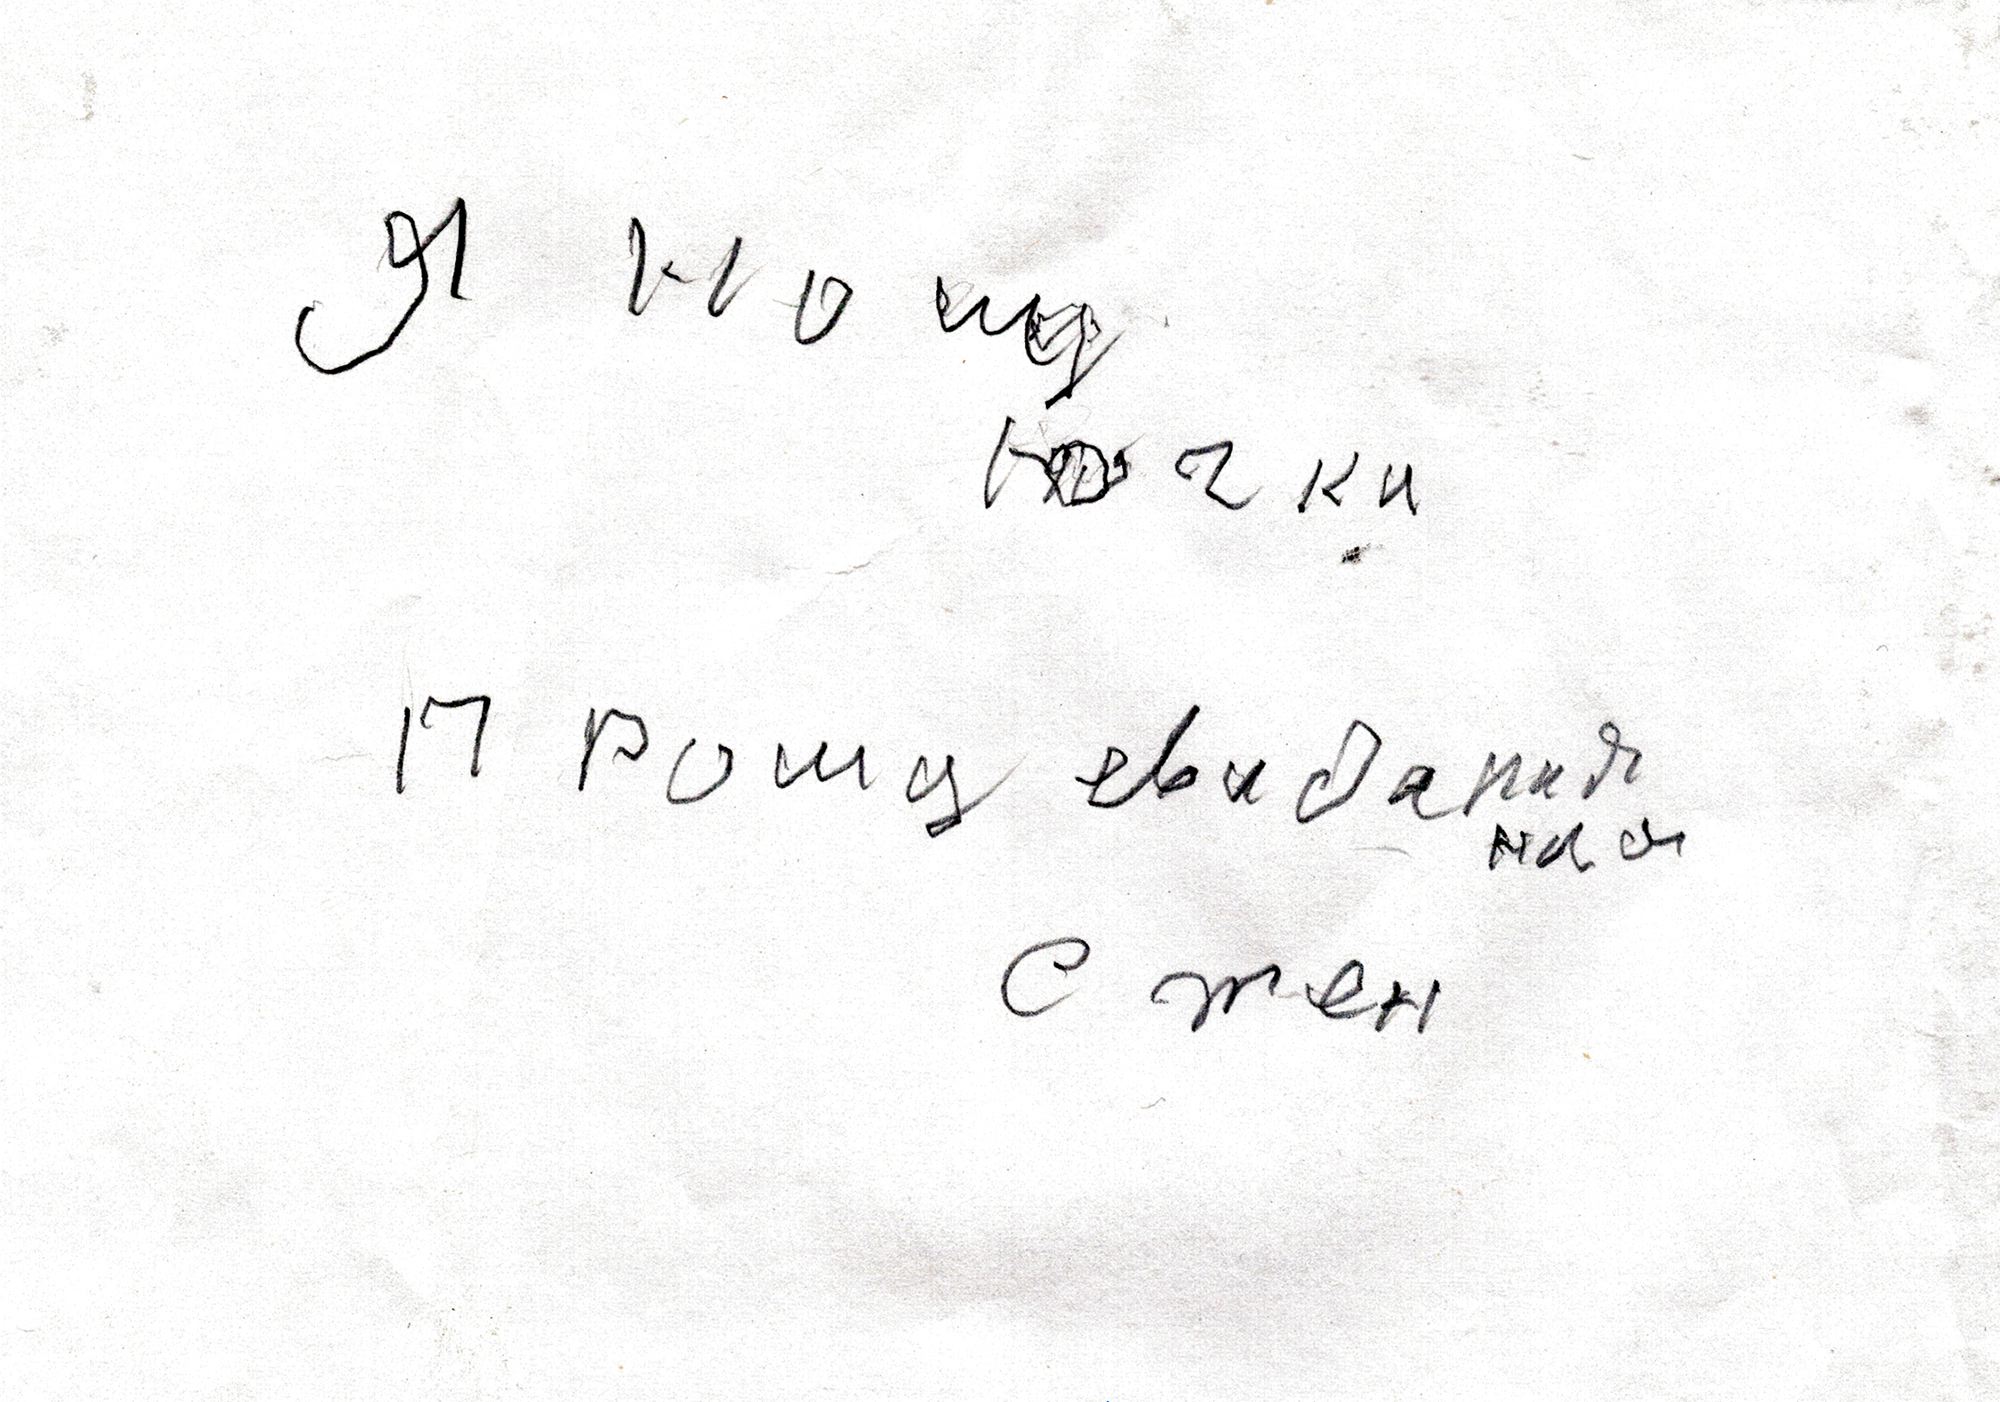 Я ношу
ночки
Прошу свидания
ная
С жен